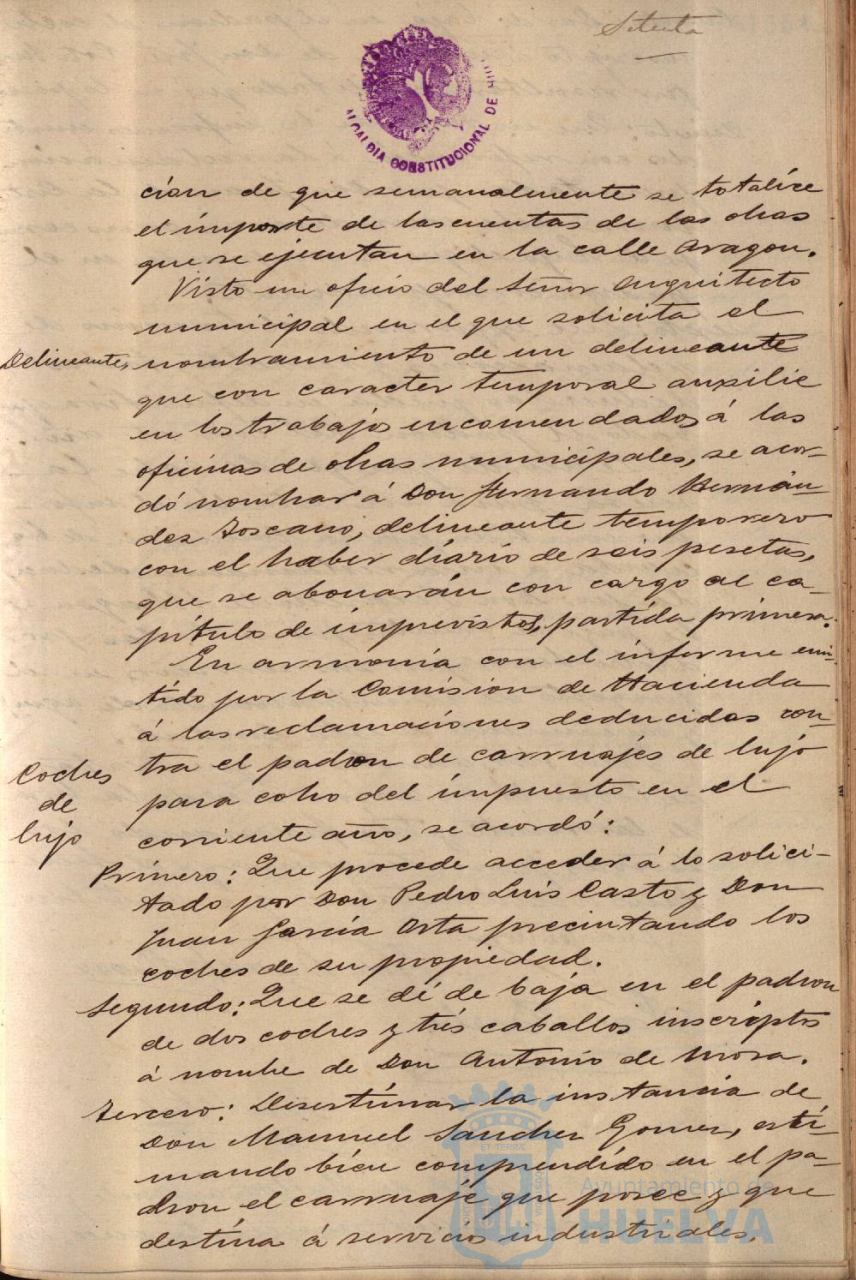 Setenta
ALCALDIA CONSTITUCIONAL DE
cion de que semanalmente se totalice
el importe de las cuentas de las obras
que se ejecutan en la calle Aragon.
Visto un oficio del Señor Arquitecto
municipal en el que solicita el
Delineante,
nombramiento de un delineante
que con caracter temporal auxilie
en los trabajos encomendados á las
oficinas de obras municipales, se acor-
dó nombrar á Don Fernando Hernán-
dez Toscano, delineante temporero
con el haber diario de seis pesetas,
que se abonarán con cargo al ca-
pítulo de imprevistos, partida primera.
En armonía con el informe emi-
tido por la Comision de Hacienda
á las reclamaciones deducidas con-
Coches
de
lujo
tra el padron de carruajes de lujo
para cobro del impuesto en el
corriente año, se acordó:
Primero: Que procede acceder á lo solici-
tado por Don Pedro Luis Casto y Don
Juan García Orta precintando los
coches de su propiedad.
Segundo: Que se dé de baja en el padron
de dos coches y trés caballos inscriptos
á nombre de Don Antonio de Mora.
Tercero: Desestimar la instancia de
Don Manuel Sanchez Gomez, esti-
mando bien comprendido en el pa-
dron el carruaje que posee y que
destina á servicios industriales.
Ayuntamiento de
HUELVA